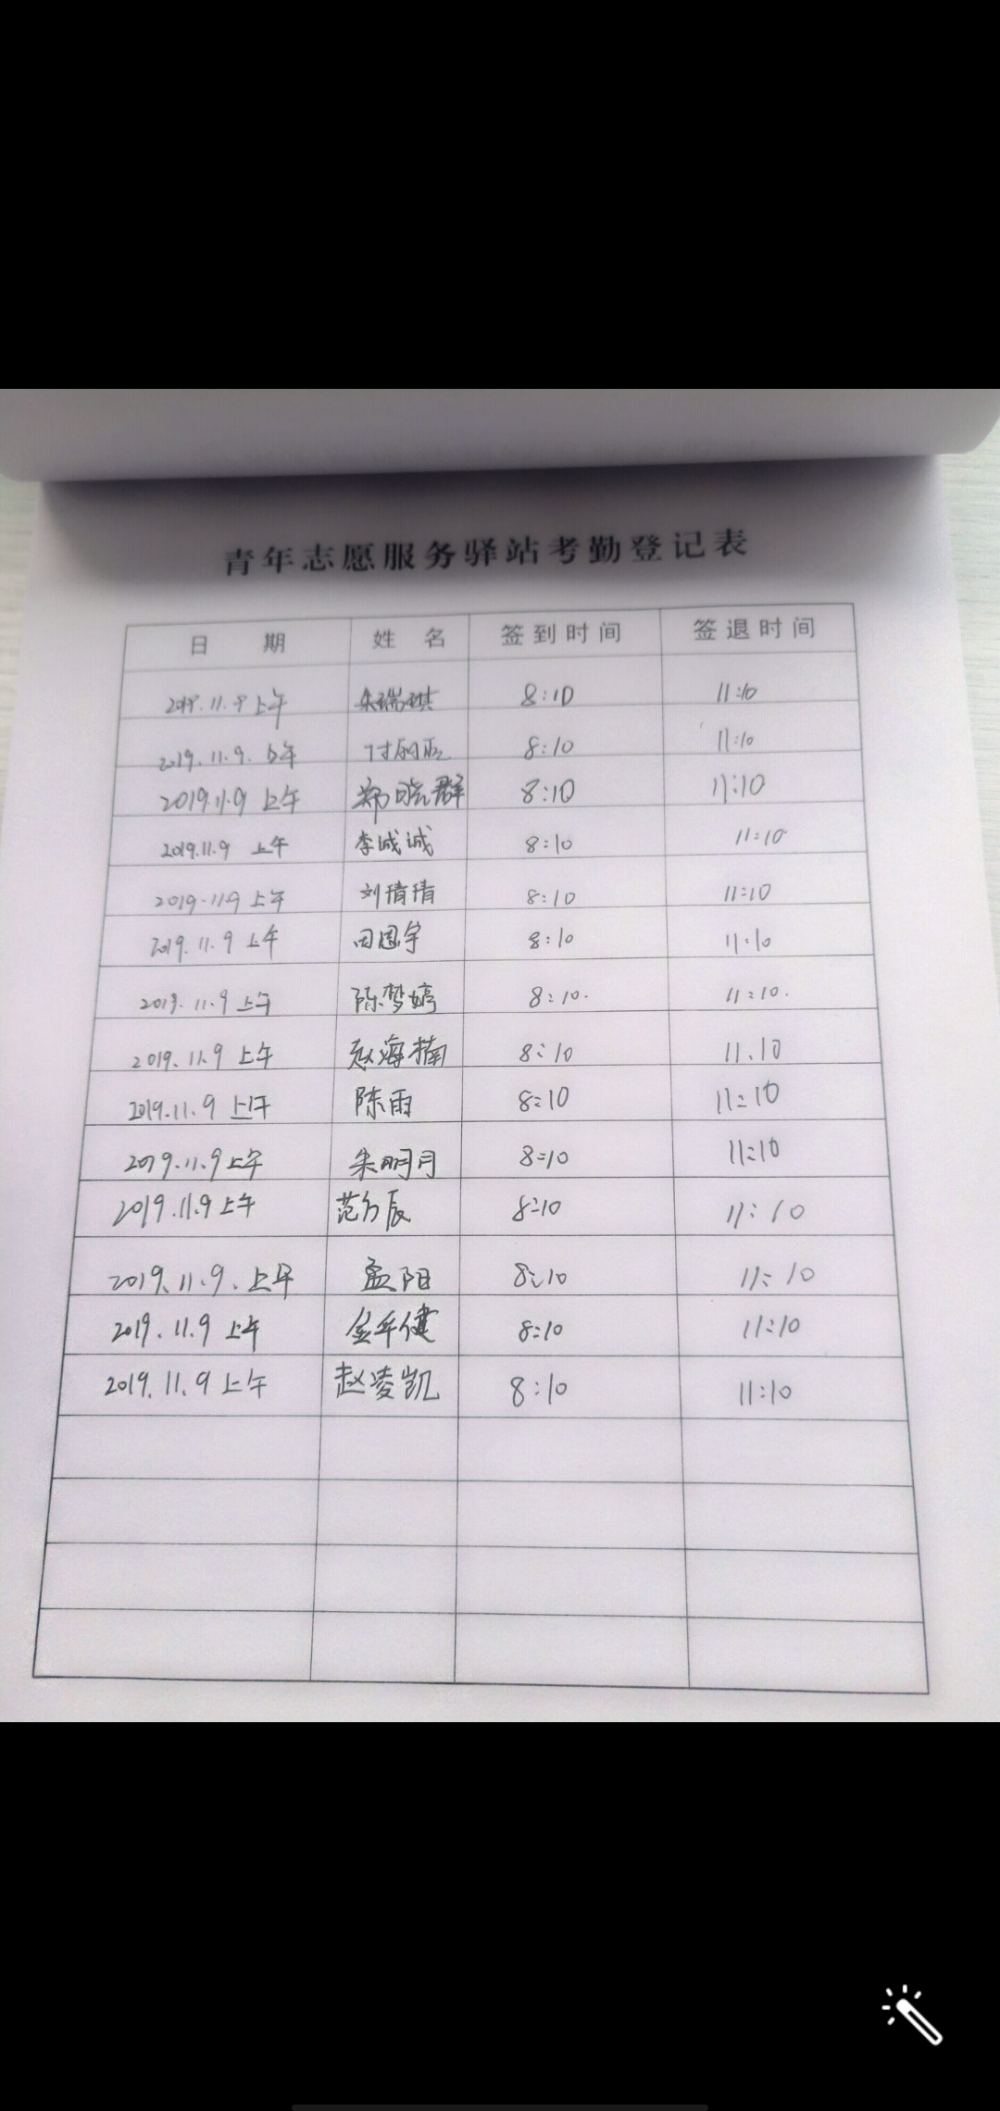 青年志愿服务驿站考勤登记表
日 期 姓 名 签到时间 签退时间
2019.11.9 上午 朱瑞琪 8:10 11:10
2019.11.9. 上午 8:10 11:10
2019.11.9 上午 郑晓群 8:10 11:10
2019.11.9 上午 李诚诚 8:10 11:10
2019.11.9 上午 刘倩倩 8:10 11:10
2019.11.9 上午 田恩宇 8:10 11:10
2019.11.9 上午 陈梦婷 8:10. 11:10.
2019.11.9 上午 赵海楠 8:10 11.10
2019.11.9 上午 陈雨 8:10 11:10
2019.11.9 上午 朱明月 8:10 11:10
2019.11.9 上午 8:10 11:10
2019.11.9. 上午 孟阳 8:10 11:10
2019.11.9 上午 健 8:10 11:10
2019.11.9 上午 赵凌凯 8:10 11:10